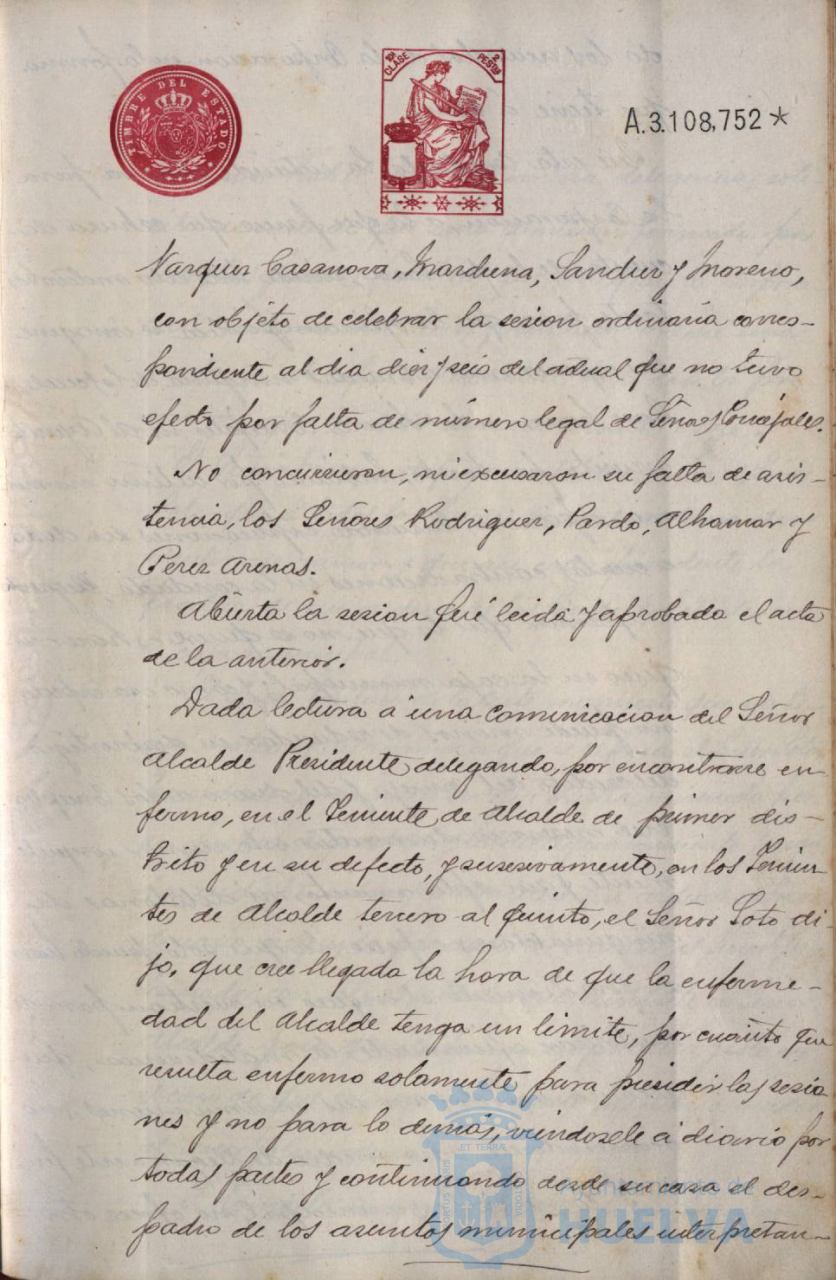 TIMBRE DEL ESTADO
10ª CLASE 2 PESTAS
A.3.108,752 *
Varquez Casanova, Marchena, Sanchez y Moreno,
con objeto de celebrar la sesion ordinaria corres-
pondiente al dia diez y seis del actual que no tuvo
efecto por falta de número legal de Señores Concejales.
No concurrieron, ni excusaron su falta de asis-
tencia, los Señores Rodriguez, Pardo, Alhamar y
Perez Arenas.
Abierta la sesion fué leida y aprobada el acta
de la anterior.
Dada lectura á una comunicacion del Señor
Alcalde Presidente delegando, por encontrarse en-
fermo, en el Teniente de Alcalde de primer dis-
trito y en su defecto, y sucesivamente, en los Tenien-
tes de Alcalde tercero al quinto, el Señor Soto di-
jo, que cree llegada la hora de que la enferme-
dad del Alcalde tenga un limite, por cuanto que
resulta enfermo solamente para presidir las sesio
nes y no para lo demás, viendosele á diario por
todas partes y continuando desde su casa el des-
pacho de los asuntos municipales interpretan-
HUELVA